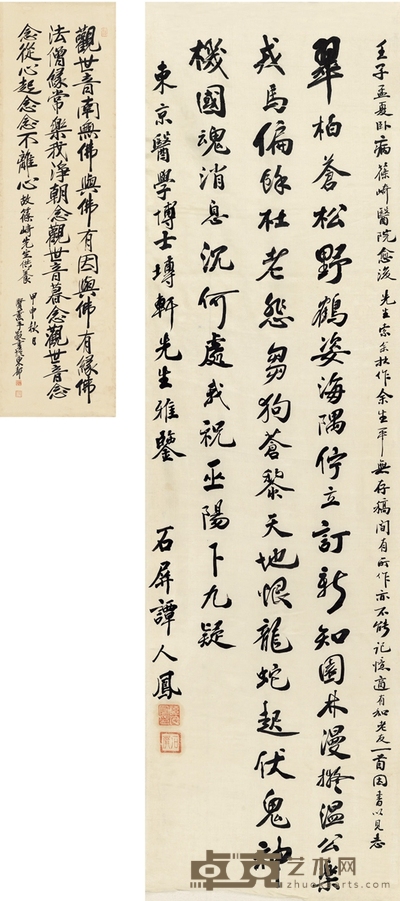 壬子孟夏卧病篠崎醫院愈後先生索余拙作余生平無存稿間有所作亦不能記憶適有和老友一首因書以見志
翠柏蒼松野鶴姿海隅佇立訂新知園林漫擬溫公樂
戎馬偏餘杜老悲芻狗蒼黎天地恨龍蛇起伏鬼神
機國魂消息沉何處我祝巫陽下九疑
東京醫學博士塼軒先生雅鑒
石屏譚人鳳
觀世音南無佛與佛有因與佛有緣佛
法僧緣常樂我淨朝念觀世音暮念觀世音念
念從心起念念不離心
故篠崎先生供養
甲申秋日
卓克艺术网
zhuokearts.com